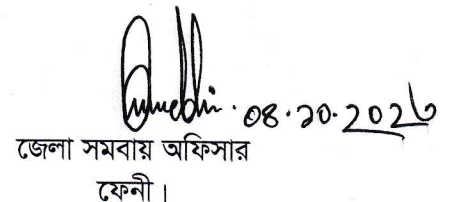 ০৪.১০.২০২৩
জেলা সমবায় অফিসার
ফেনী।